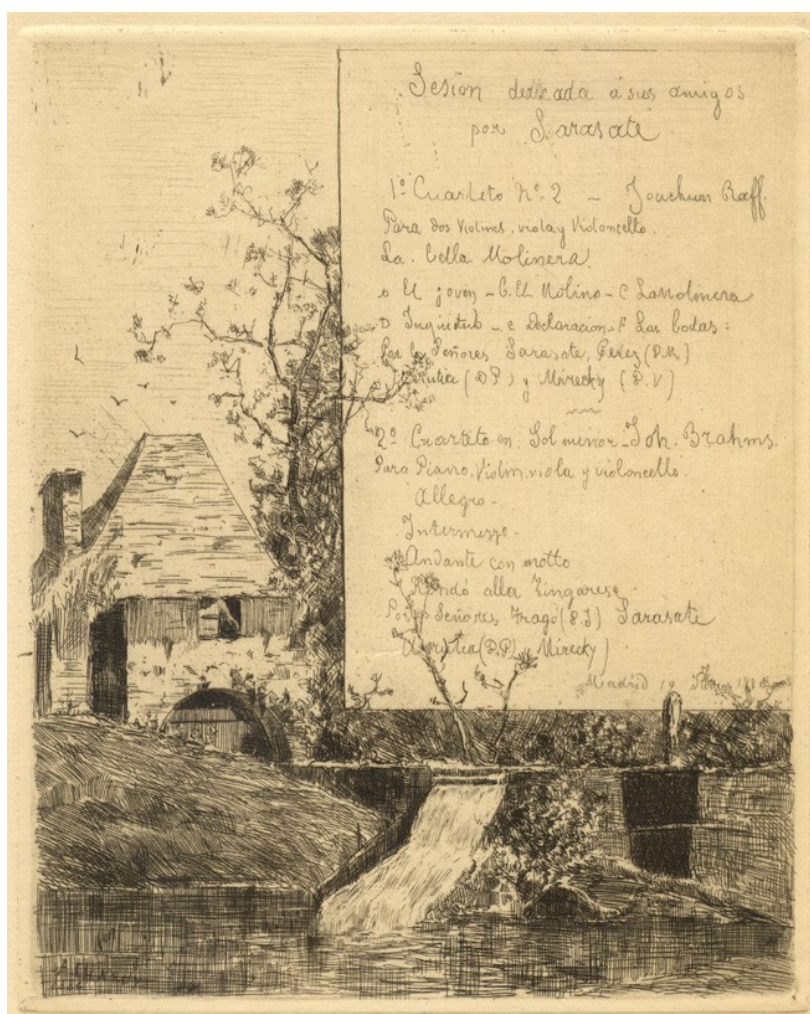 Sesión dedicada á sus amigos
por Sarasate
1º Cuarteto Nº 2 - Joachum Raff.
Para dos Violines, viola y Violoncello.
La bella Molinera
El joven - B. El Molino - C La Molinera
D Inquietud - e Declaracion - F Las bodas:
Por los Señores Sarasate, Perez (D.M.)
(D.P.) y Mirecky (D.V)
2º Cuarteto en Sol menor - Joh. Brahms.
Para Piano, Violin, viola y violoncello.
Allegro -
Intermezzo -
Andante con motto
Rondó alla Zingarese
Por los Señores Tragó (D.J) Sarasate
(D.P) Mirecky)
Madrid 19